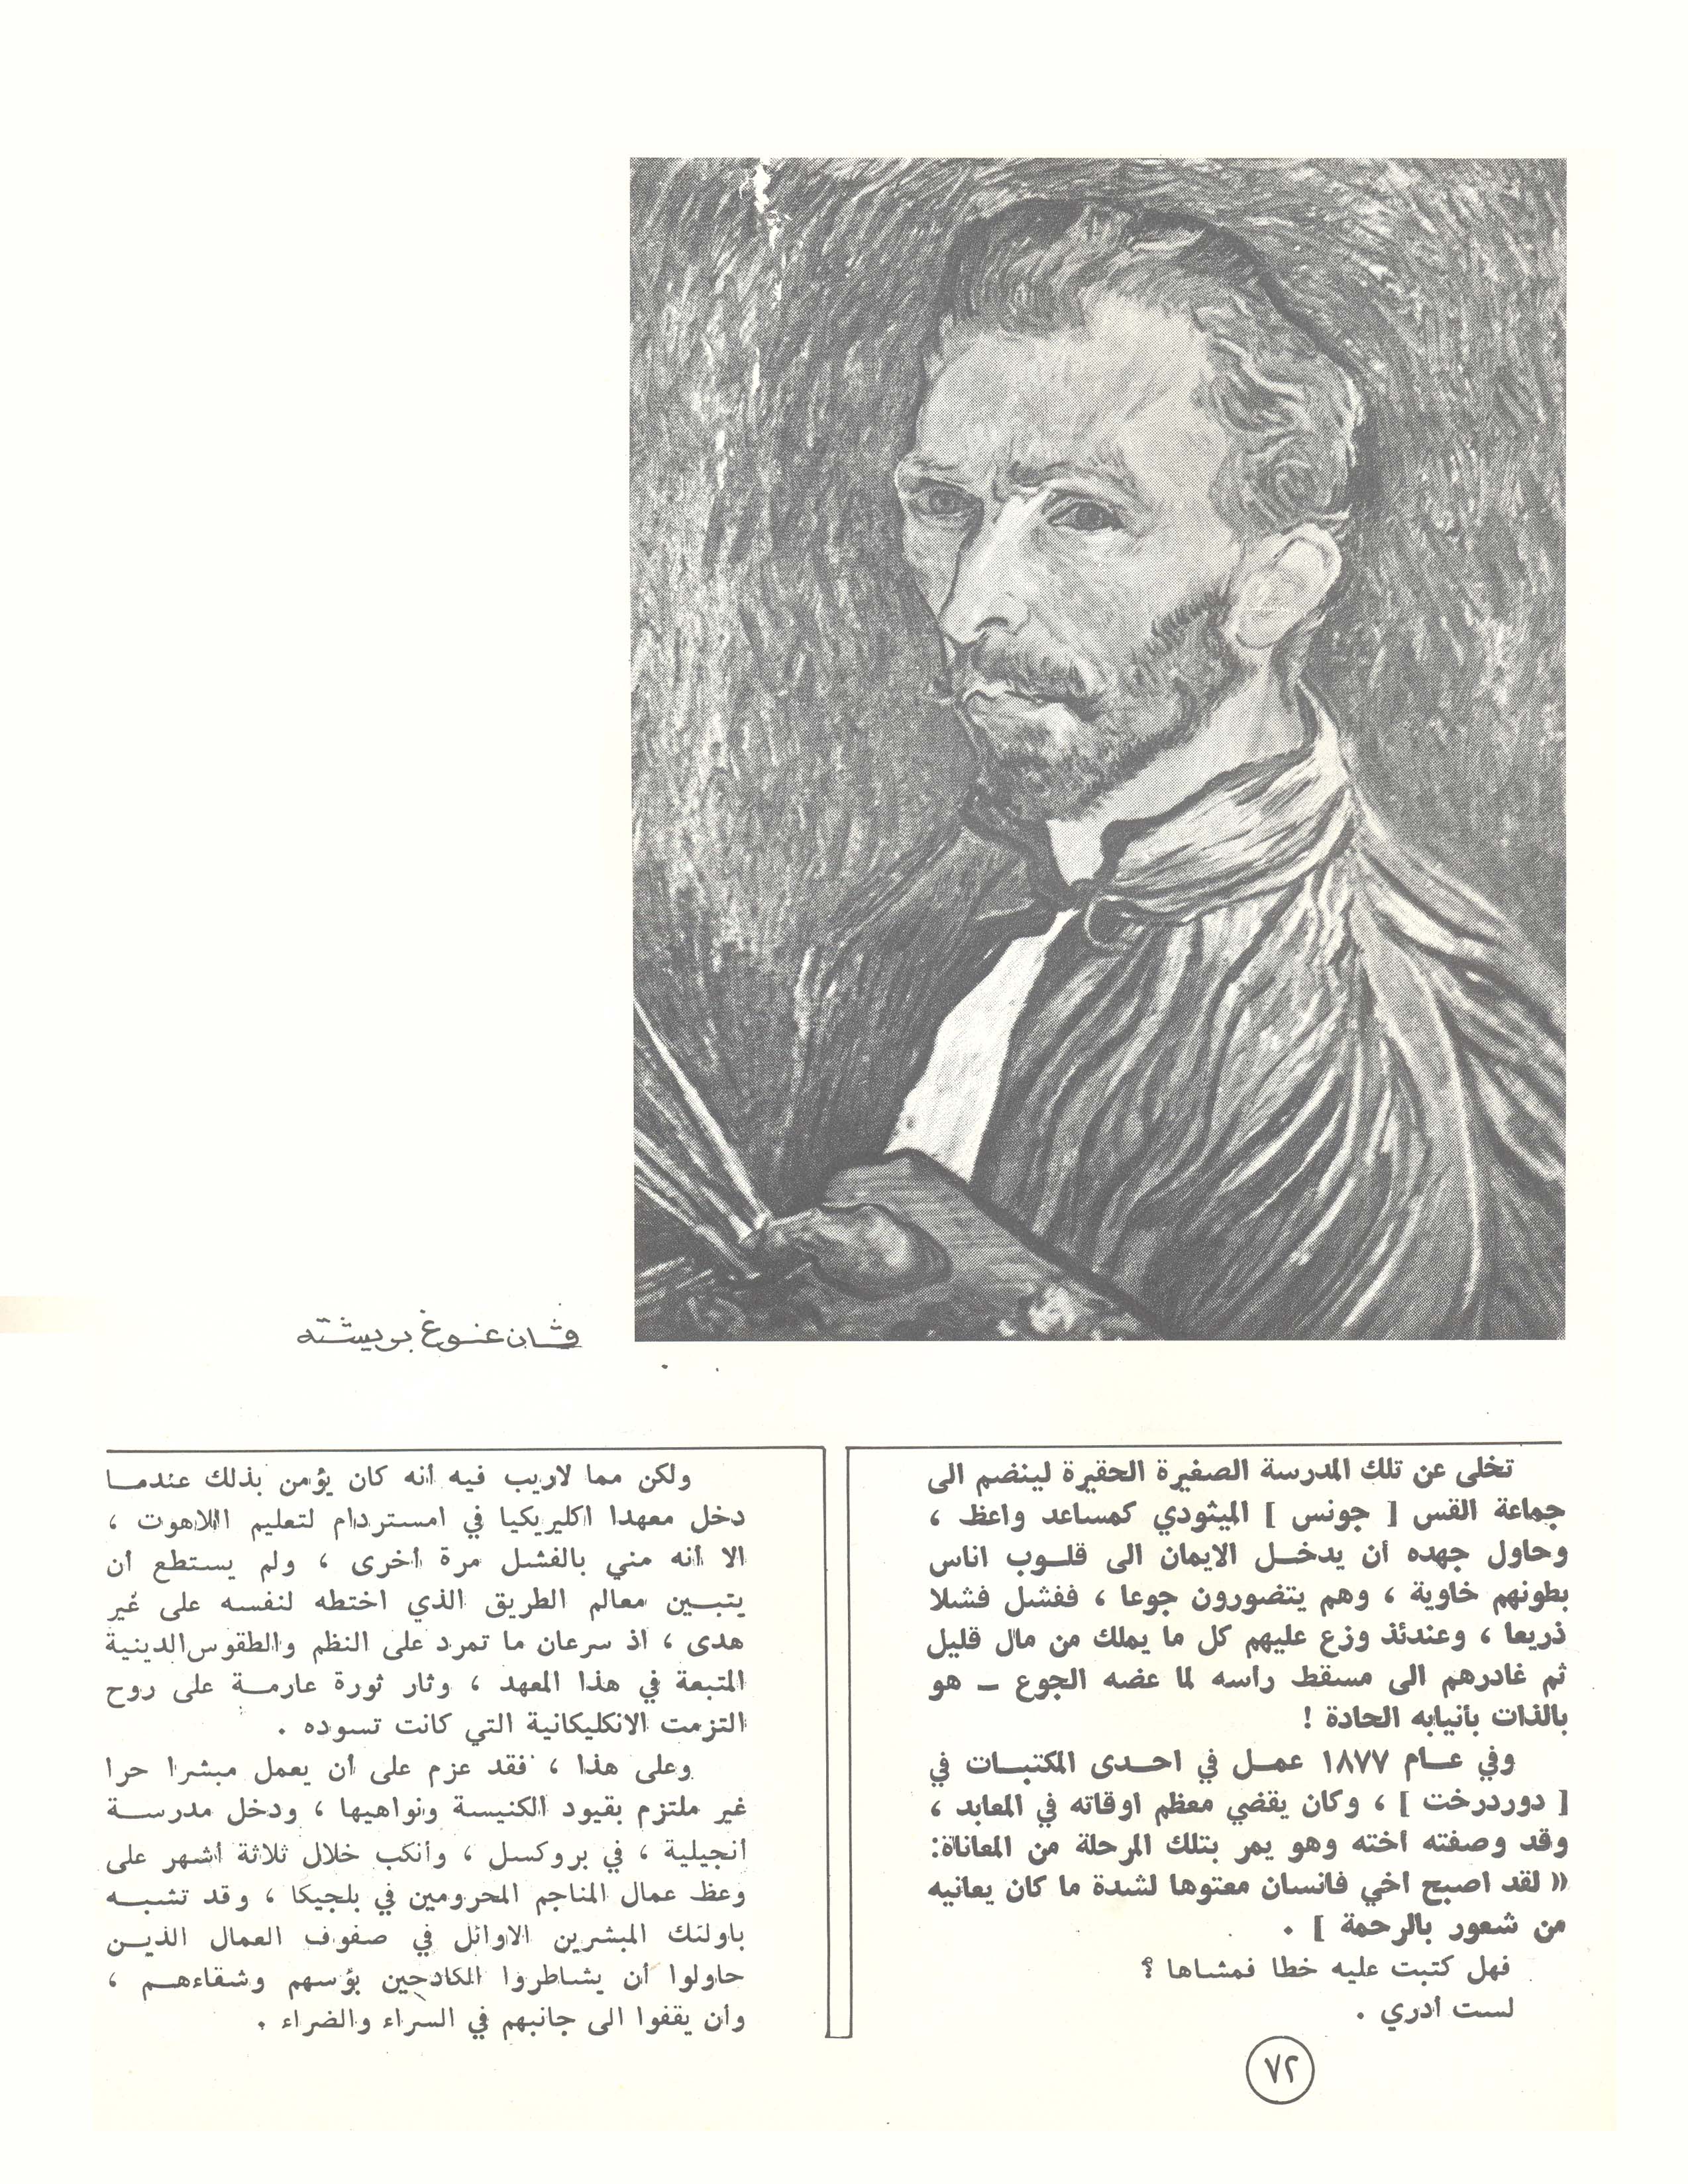 ڤان غوغ بريشته
تخلى عن تلك المدرسة الصغيرة الحقيرة لينضم الى
جماعة القس [ جونس ] الميثودي كمساعد واعظ ،
وحاول جهده أن يدخــل الايمان الى قلــوب اناس
بطونهم خاوية ، وهم يتضورون جوعا ، ففشل فشلا
ذريعا ، وعندئذ وزع عليهم كل ما يملك من مال قليل
ثم غادرهم الى مسقط رأسه لما عضه الجوع ــ هو
بالذات بأنيابه الحادة !
وفي عــام ١٨٧٧ عمــل في احــدى المكتبــات في
[ دوردرخت ] ، وكان يقضي معظم اوقاته في المعابد ،
وقد وصفته اخته وهو يمر بتلك المرحلة من المعاناة:
« لقد اصبح اخي فانسان معتوها لشدة ما كان يعانيه
من شعور بالرحمة ] .
فهل كتبت عليه خطا فمشاها ؟
لست أدري .
ولكن مما لاريب فيه أنه كان يؤمن بذلك عندمــا
دخل معهدا اكليريكيا في امستردام لتعليم اللاهوت ،
الا أنه مني بالفشل مرة أخرى ، ولم يستطع أن
يتبــين معالم الطريق الذي اختطه لنفسه على غير
هدى ، اذ سرعان ما تمرد على النظم والطقوس الدينية
المتبعة في هذا المعهد ، وثار ثورة عارمــة على روح
التزمت الانكليكانية التي كانت تسوده .
وعلى هذا ، فقد عزم على أن يعمل مبشرا حرا
غير ملتزم بقيود الكنيسة ونواهيها ، ودخل مدرســة
أنجيلية ، في بروكسل ، وأنكب خلال ثلاثة أشهر على
وعظ عمال المناجم المحرومين في بلجيكا ، وقد تشبــه
باولئك المبشرين الاوائل في صفوف العمال الذيــن
حاولوا أن يشاطروا الكادحين بؤسهم وشقاءهــم ،
وأن يقفوا الى جانبهم في السراء والضراء .
٧٢